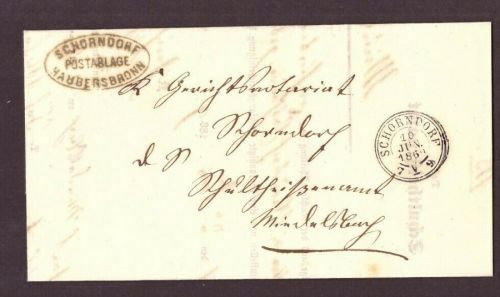 SCHORNDORF
POSTABLAGE
HAUBERSBRONN
K Gerichtsnotariat
Schorndorf
d S
Schultheißenamt
Miedelsbach
SCHORNDORF
10
JUN.